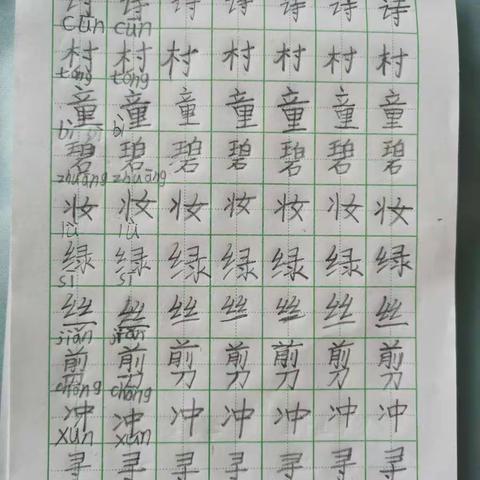 诗 诗 诗 诗 诗 诗 诗
cūn cūn
村 村 村 村 村 村 村
tóng tóng
童 童 童 童 童 童 童
bì bì
碧 碧 碧 碧 碧 碧 碧
zhuāng zhuāng
妆 妆 妆 妆 妆 妆 妆
lǜ lǜ
绿 绿 绿 绿 绿 绿 绿
sī sī
丝 丝 丝 丝 丝 丝 丝
jiǎn jiǎn
剪 剪 剪 剪 剪 剪 剪
chōng chōng
冲 冲 冲 冲 冲 冲 冲
xún xún
寻 寻 寻 寻 寻 寻 寻